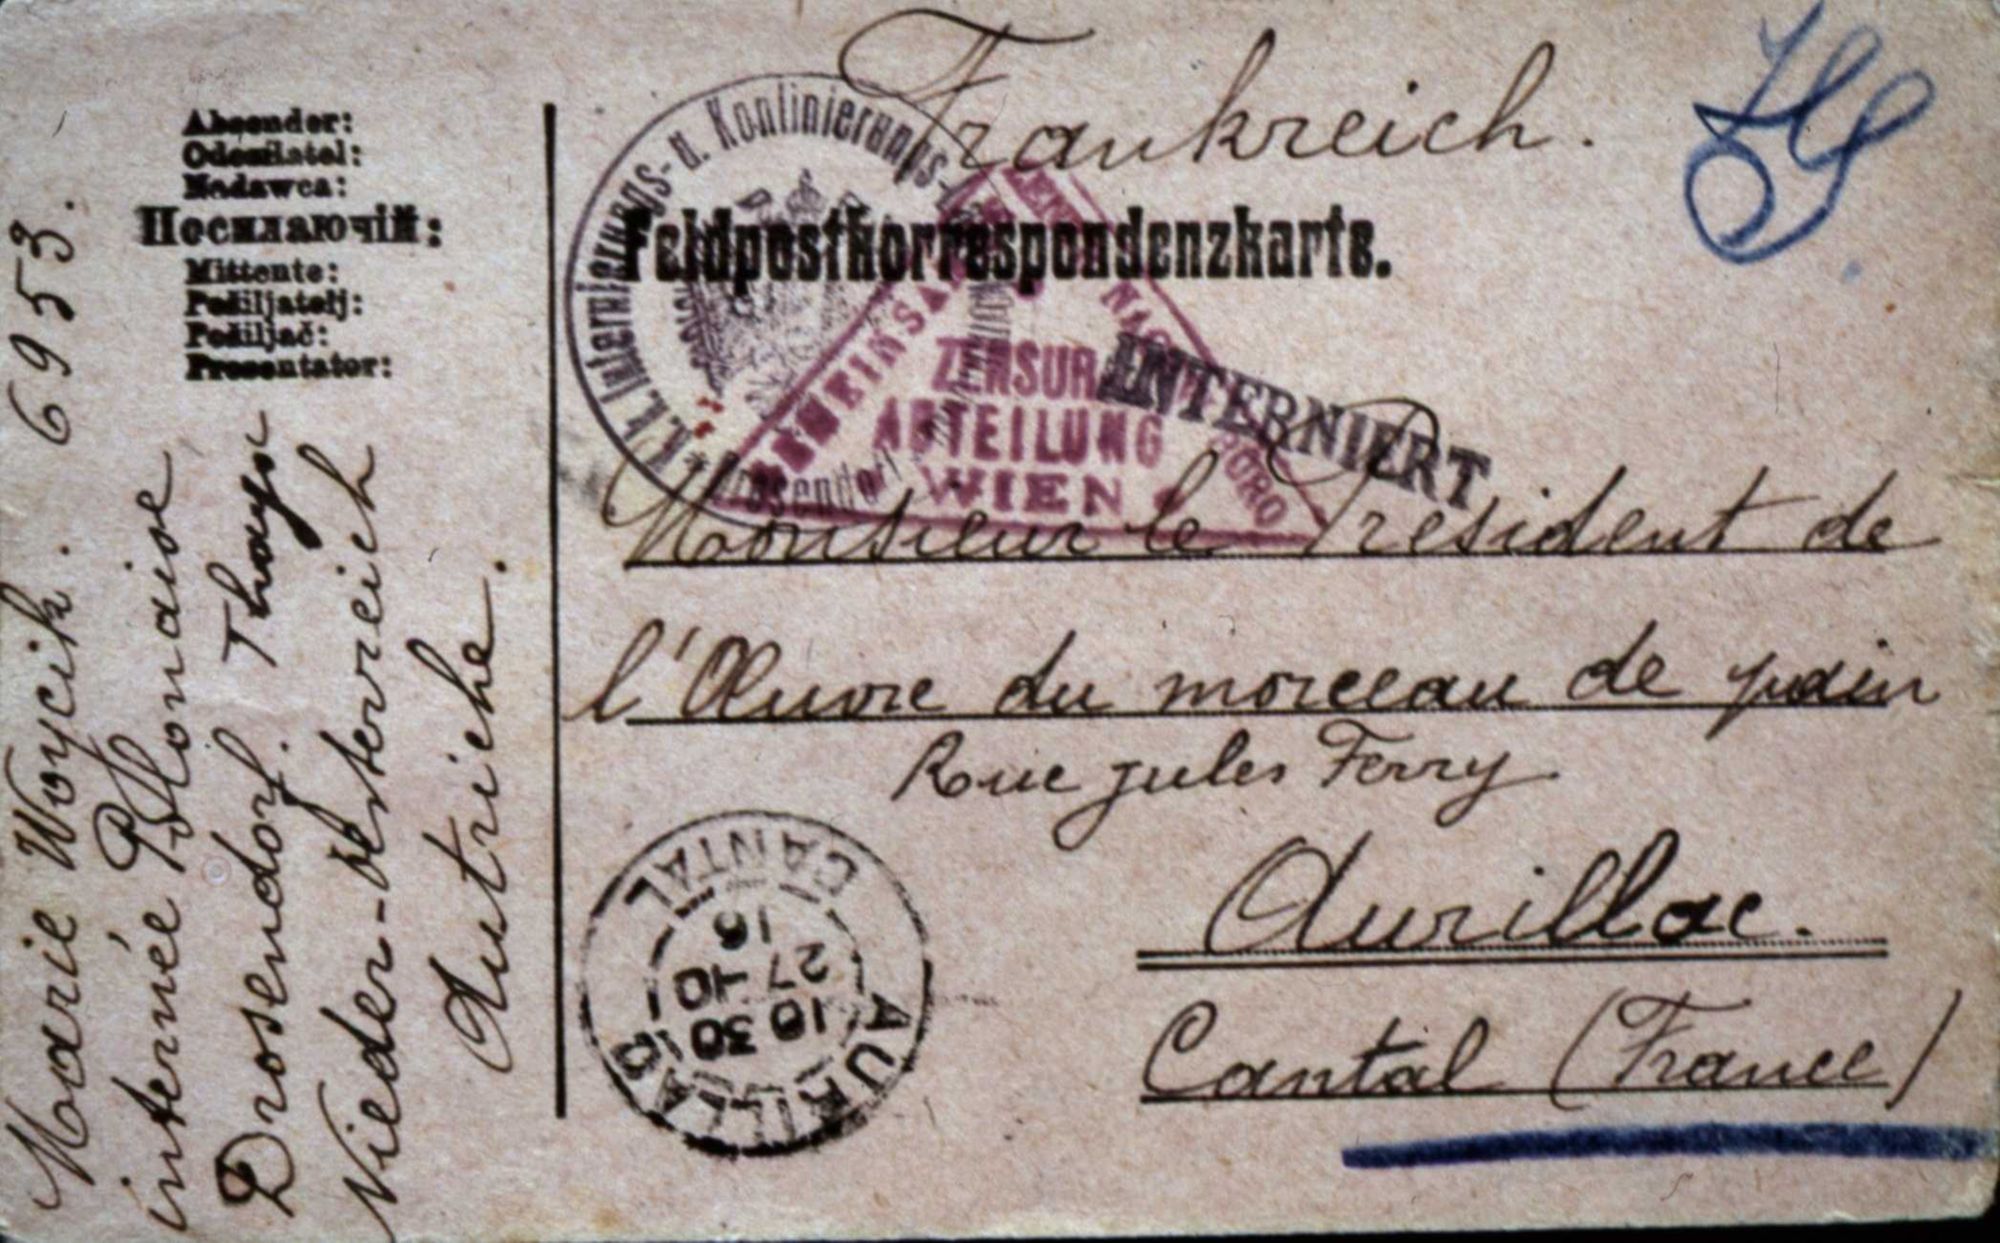 Frankreich.
Absender:
Odesilatel:
Nadawca:
Посилаючій:
Mittente:
Pošiljatelj:
Pošiljač:
Presentator:
Feldpostkorrespondenzkarte.
K. k. Internierungs- u. Konfinierungs-
Drosendorf
GEMEINSA
NAC
BÜRO
ZENSUR
ABTEILUNG
WIEN
INTERNIERT
Marie Woycik. 6953.
internée Polonaise
Drosendorf. Thaya
Nieder-Österreich
Autriche.
Monsieur le President de
l'Œuvre du morceau de pain
Rue Jules Ferry.
Aurillac.
Cantal (France)
AURILLAC
10 30
27-10
16
CANTAL